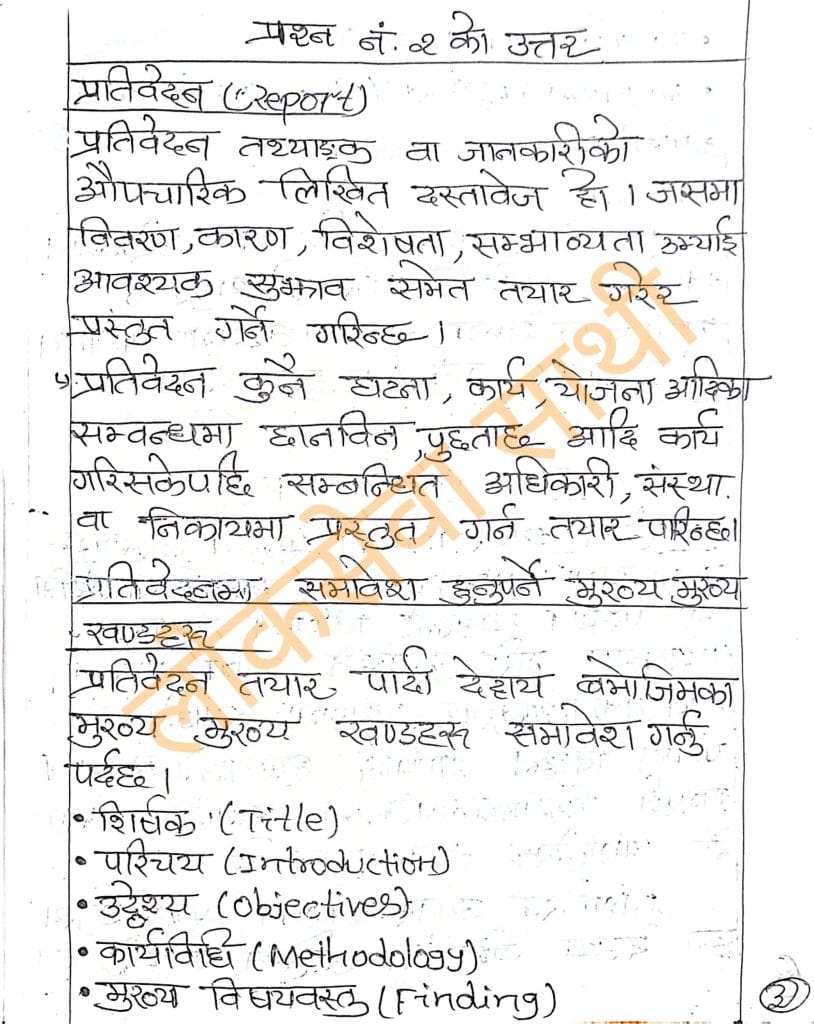 प्रश्न नं. २ को उत्तर
प्रतिवेदन (Report)
प्रतिवेदन तथ्याङ्क वा जानकारीको
औपचारिक लिखित दस्तावेज हो । जसमा
विवरण, कारण, विशेषता, सम्भाव्यता
आवश्यक सुझाव समेत तयार गरेर
प्रस्तुत गर्ने गरिन्छ ।
प्रतिवेदन कुनै घटना, कार्य, योजना आदिका
सम्वन्धमा छानविन, पुछताछ आदि कार्य
गरिसकेपछि सम्बन्धित अधिकारी, संस्था
वा निकायमा प्रस्तुत गर्न तयार परिन्छ।
प्रतिवेदनमा समावेश हुनुपर्ने मुख्य मुख्य
खण्डहरू
प्रतिवेदन तयार पार्दा देहाय बमोजिमका
मुख्य मुख्य खण्डहरू समावेश गर्नु
पर्दछ ।
• शिर्षक (Title)
• परिचय (Introduction)
• उद्देश्य (Objectives)
• कार्यविधि (Methodology)
• मुख्य विषयवस्तु (Finding)
३
लोकसेवा साथी